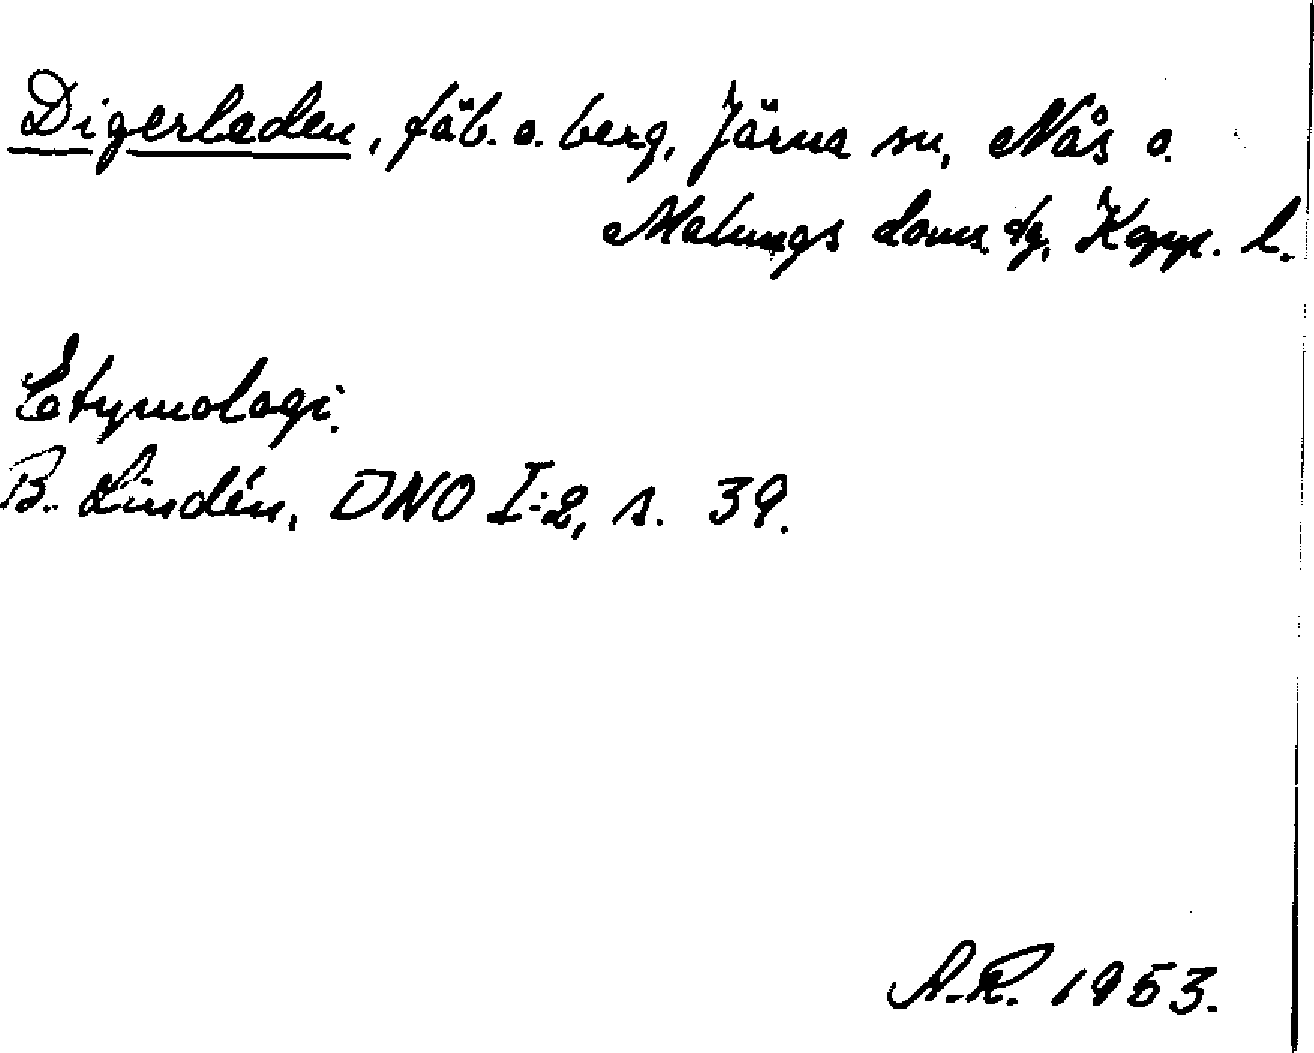 Digerladen, fäb. o. berg, Järna sn, Nås o.
Malungs doms. dg, Kopp. l.
Etymologi.
B. Lindén, DNO I:2, s. 39.
A.R. 1953.